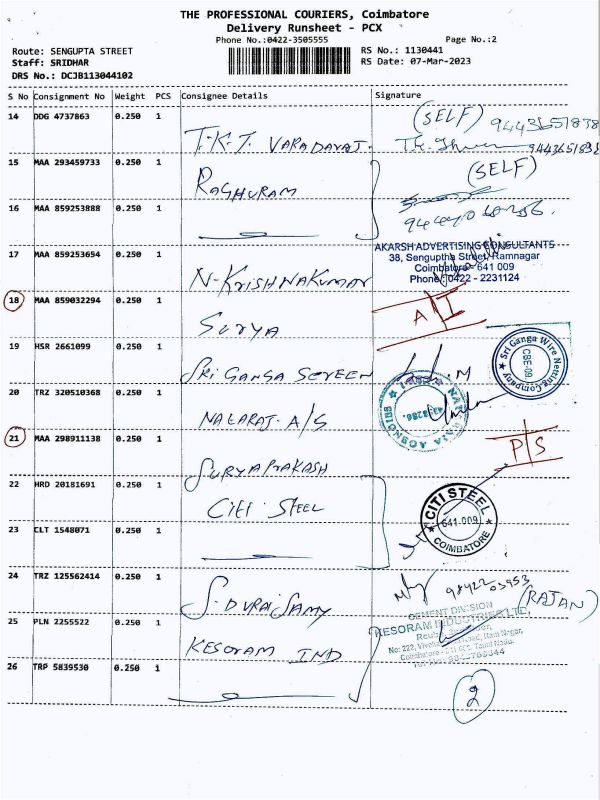 THE PROFESSIONAL COURIERS, Coimbatore
Delivery Runsheet - PCX
Phone No.:0422-3505555
Page No.:2
Route: SENGUPTA STREET
RS No.: 1130441
Staff: SRIDHAR
RS Date: 07-Mar-2023
DRS No.: DCJB113044102
S No Consignment No Weight PCS Consignee Details Signature
14 DDG 4737863 0.250 1 T.K.T. VARADARAJ. (SELF) 9443651838
9443651838
15 MAA 293459733 0.250 1 RAGHURAM (SELF)
16 MAA 859253888 0.250 1
17 MAA 859253654 0.250 1 N-KRISHNAKUMAR
AKARSH ADVERTISING CONSULTANTS
38, Senguptha Street, Ramnagar
Coimbatore - 641 009
Phone: 0422 - 2231124
18 MAA 859032294 0.250 1 SURYA A/I
19 HSR 2661099 0.250 1 SRI GANGA SCREEN
Sri Ganga Wire Netting Company
CBE-09
20 TRZ 320510368 0.250 1 NATARAJ. A/S
NATARAJA AGENCIES
21 MAA 298911138 0.250 1 SURYAPRAKASH P/S
22 HRD 20181691 0.250 1 CITI STEEL
CITI STEEL
641-009
COIMBATORE
23 CLT 1548071 0.250 1
24 TRZ 125562414 0.250 1 S. DURAISAMY
(RAJAN)
25 PLN 2255522 0.250 1 KESORAM IND
CEMENT DIVISION
KESORAM INDUSTRIES LTD.
26 TRP 5839530 0.250 1
2